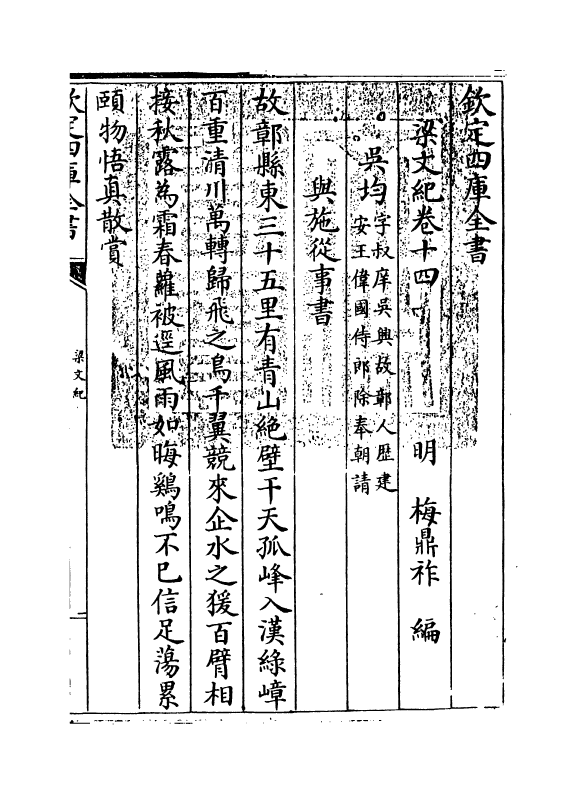 欽定四庫全書
梁文紀卷十四
明 梅鼎祚 編
吳均字叔庠吳興故鄣人歴建
安王偉國侍郎除奉朝請
與施從事書
故鄣縣東三十五里有青山絶壁干天孤峰入漢緑嶂
百重清川萬轉歸飛之鳥千翼競來企水之猨百臂相
接秋露為霜春蘿被逕風雨如晦鷄鳴不已信足蕩累
頤物悟真散賞
欽定四庫全書
梁文紀